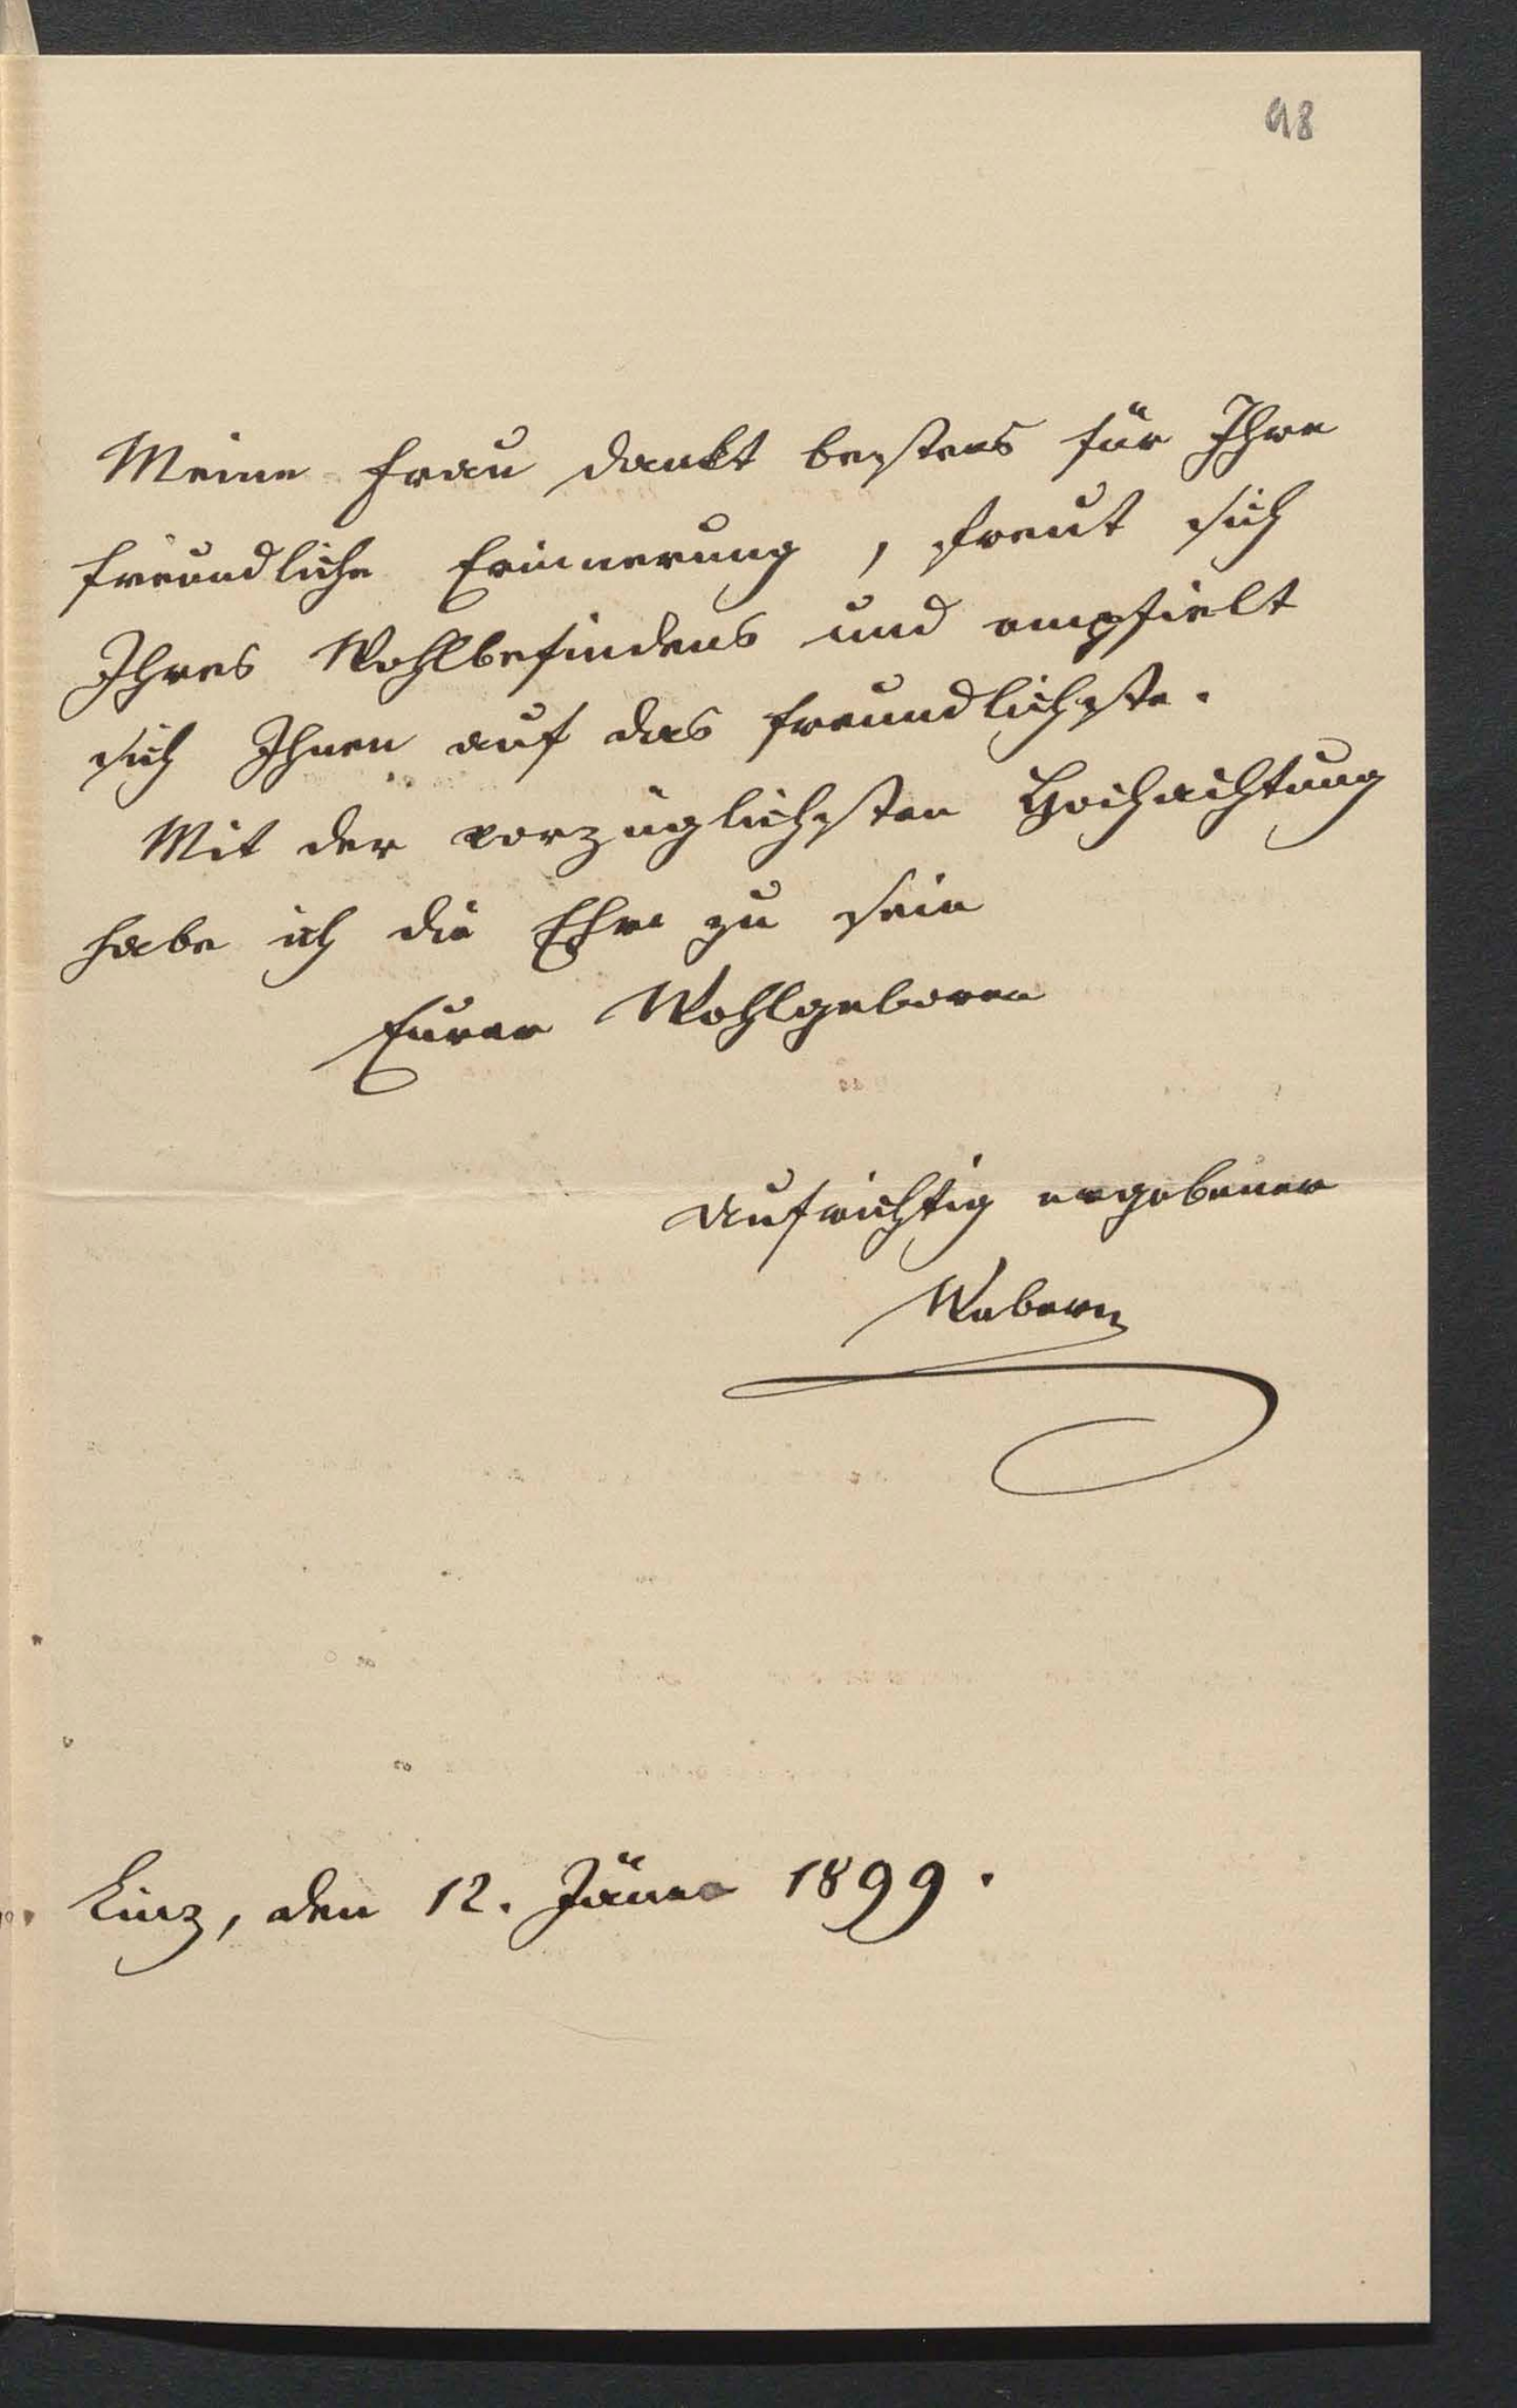 98
Meine Frau dankt bestens für Ihre
freundliche Erinnerung, freut sich
Ihres Wohlbefindens und empfielt
sich Ihnen auf das freundlichste.
Mit der vorzüglichsten Hochachtung
habe ich die Ehre zu sein
Euer Wohlgeboren
aufrichtig ergebener
Webern
Linz, den 12. Jäner 1899.